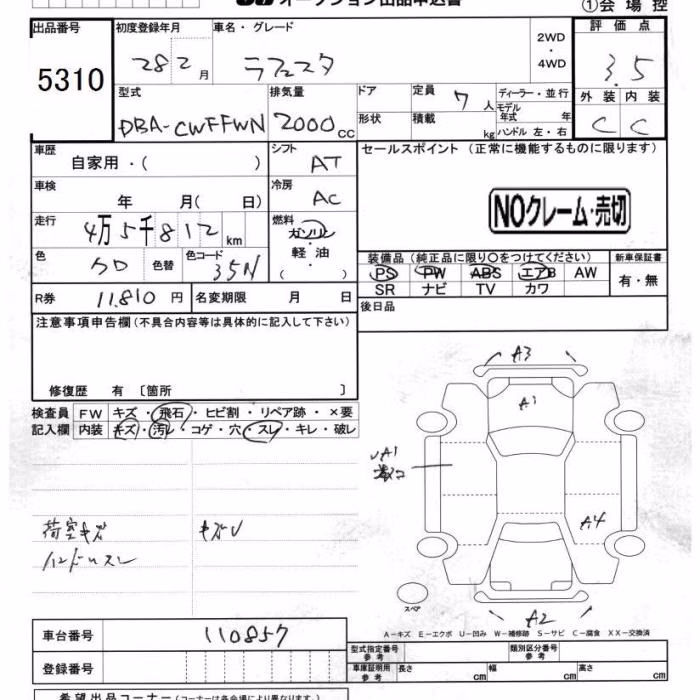 オークション出品申込書
①会場控
出品番号 初度登録年月 車名・グレード 評価点
5310 28 2月 ラフェスタ 2WD・4WD 3.5
型式 排気量 ドア 定員 ディーラー・並行 外装 内装
DBA-CWFFWN 2000cc 7人 モデル年式 年 C C
形状 積載 kg ハンドル 左・右
車歴 シフト セールスポイント (正常に機能するものに限ります)
自家用・( ) AT
車検 冷房
年 月( 日) AC
NOクレーム・売切
走行 燃料
4万5千812km ガソリン・軽油・( )
色 色替 色コード 装備品 (純正品に限り○をつけてください) 新車保証書
クロ 35N PS PW ABS エアB AW 有・無
SR ナビ TV カワ
R券 11,810円 名変期限 月 日 後日品
注意事項申告欄(不具合内容等は具体的に記入して下さい)
修復歴 有 〔箇所 〕
検査員 FW キズ・飛石・ヒビ割・リペア跡・×要
記入欄 内装 キズ・汚レ・コゲ・穴・スレ・キレ・破レ
A3
A1
A1
A4
荷室キズ キズU
ハンドルスレ
スペア
A2
A-キズ E-エクボ U-凹み W-補修跡 S-サビ C-腐食 XX-交換済
車台番号 110857
型式指定番号 参考 類別区分番号 参考
登録番号
車庫証明用 参考 長さ cm 幅 cm 高さ cm
希望出品コーナー(コーナーは各会場により異なります。)